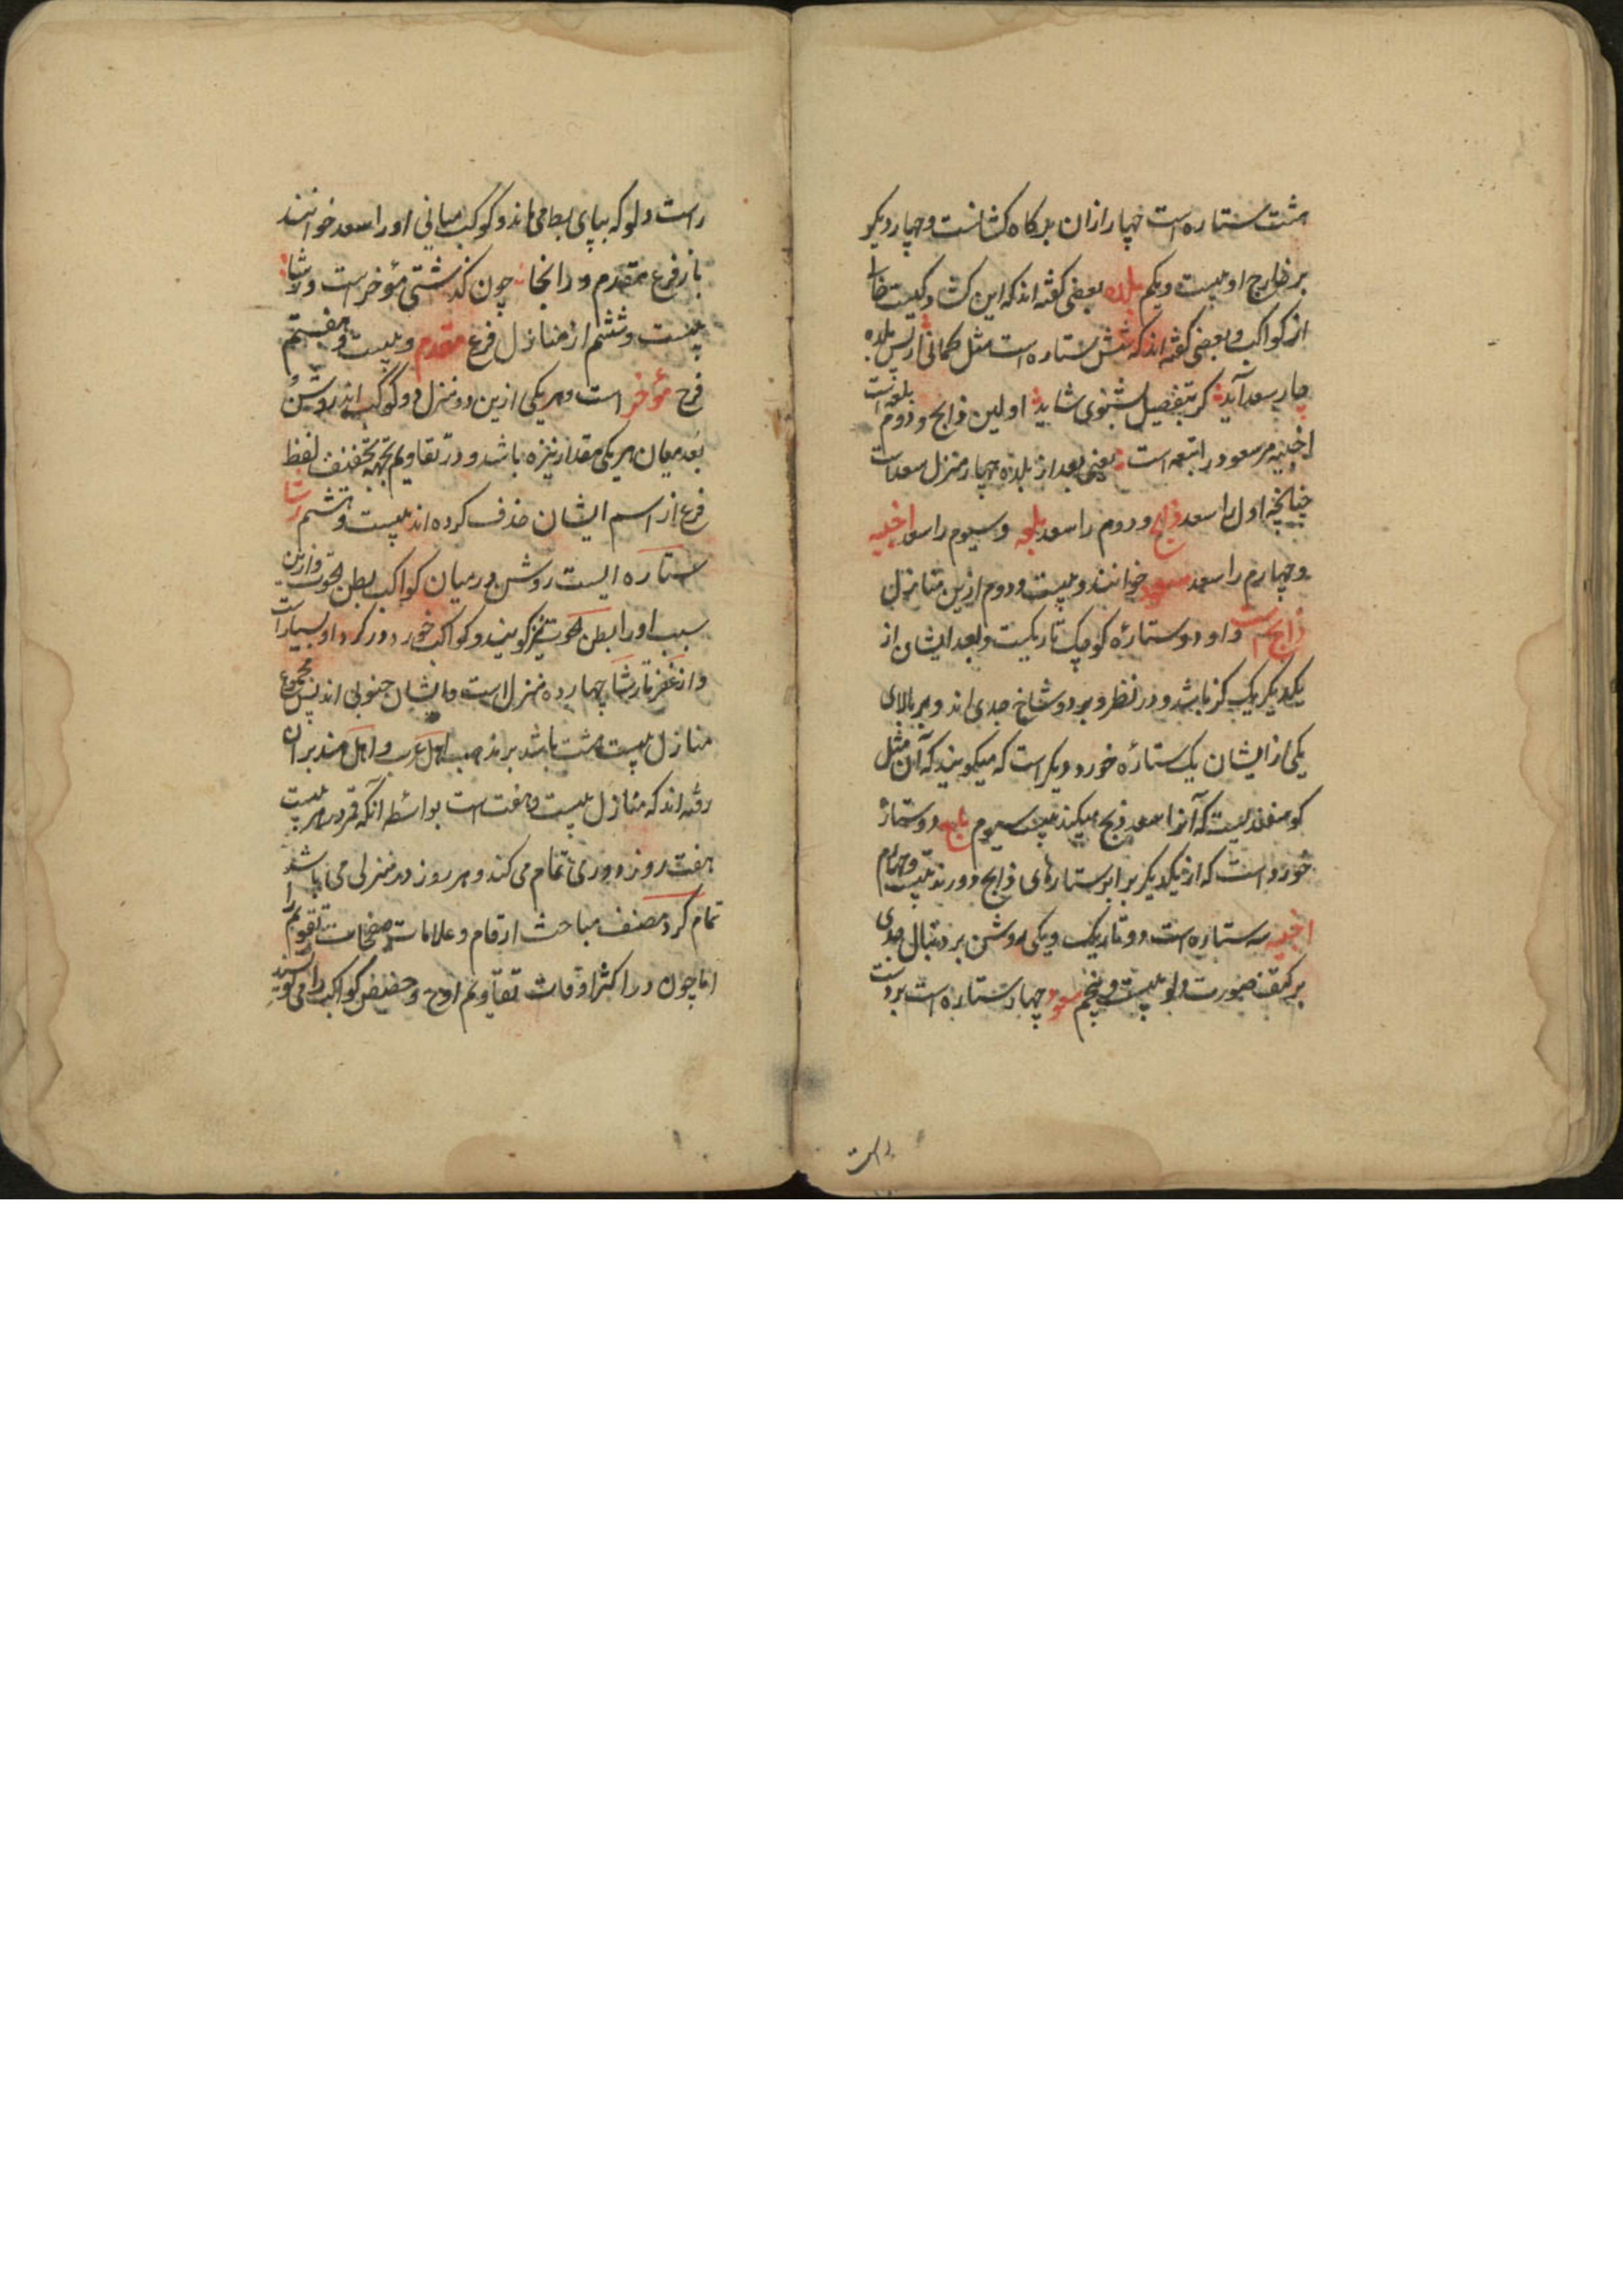 هشت ستاره است چهار ازان بر کاه کشانست و چهار دیگر
بر خارج او بیست و یکم بلده بعضی گفته اند که این کشادگیست خالی
از کواکب و بعضی گفته اند که شش ستاره است مثل کمانی از پس بلده
چار سعد آید گر بتفصیل بشنوی شاید اولین ذابح و دوم بلع است
اخبیه مر سعود را تبعه است یعنی بعد از بلده چهار منزل سعد است
چنانچه اول را سعد ذابح و دوم را سعد بلع و سیوم را سعد اخبیه
و چهارم را سعد سعود خوانند و بیست و دوم ازین منازل
ذابح است و او دو ستاره کوچک تاریکست و بعد ایشان از
یکدیگر یک گز باشد و در نظر و بر دو شاخ جدی اند و بر بالای
یکی از ایشان یک ستاره خورد دیگر است که میگویند که آن مثل
گوسفندیست که آنرا سعد ذبح میکند بیست سیوم بلع دو ستاره
خورد است که از یکدیگر برابر ستارهای ذابح دورند بیست و چهارم
اخبیه سه ستاره است دو تاریک و یکی روشن بر دنبال جدی
بر کتف صورت دلو بیست و پنجم سعود چهار ستاره است بر دست
راست
راست دلو که بپای بط می ماند و کوکب میانی او را سعد خوانند
باز فرغ مقدم و زانجا چون گذشتی مؤخر است و رشا
بیست و ششم از منازل فرغ مقدم و بیست و هفتم
فرغ مؤخر است و هر یکی ازین دو منزل دو کوکب اند روشن و
بعد میان هر یکی مقدار نیزه باشد و در تقاویم بجهة تخفیف لفظ
فرغ از اسم ایشان حذف کرده اند بیست و هشتم رشا
ستاره ایست روشن در میان کواکب بطن حوت و ازین
سبب او را بطن حوت نیز گویند و کواکب خورد دور گرد او بسیار است
و از غفر تا رشا چهارده منزل است و ایشان جنوبی اند پس مجموع
منازل بیست هشت باشد بر مذهب اهل عرب و اهل هند بر آن
رفته اند که منازل بیست و هفت است بواسطه آنکه قمر در هر بیست
هفت روز دوری تمام می کند و هر روز در منزلی می باشد
تمام کرد مصنف مباحث ارقام و علامات صفحات تقویم را
اما چون در اکثر اوقات تقاویم اوج و حضیض کواکب را می نویسند